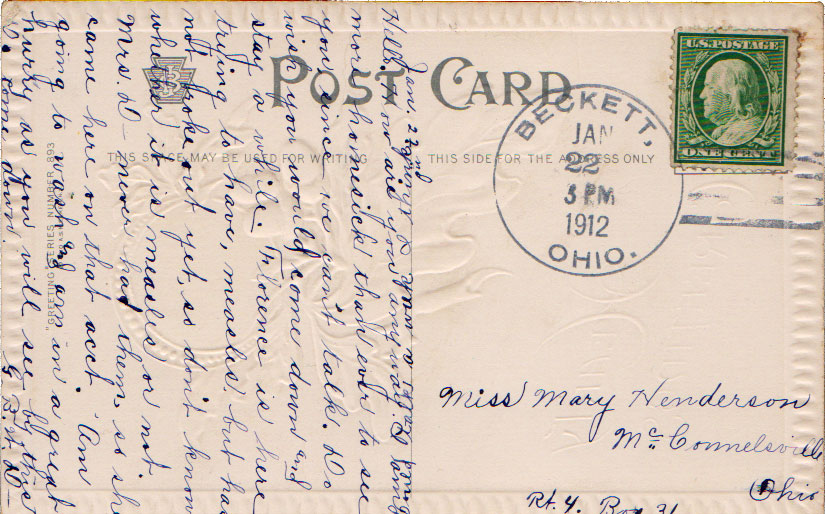 POST CARD
THIS SPACE MAY BE USED FOR WRITING
THIS SIDE FOR THE ADDRESS ONLY
"GREETING" SERIES NUMBER 893
U.S. POSTAGE
ONE CENT
BECKETT,
JAN
22
3 PM
1912
OHIO.
Jan. 22nd
Hello. How are you any way. I am
more homesick than ever to see
you since we can't talk. Do
wish you would come down and
stay a while. Florence is here
trying to have, measles but has
not broke out yet, so don't know
whether it is measles or not.
Mrs. D- never had them, so she
came here on that acct. Am
going to wash and am in a great
hurry as you will see by this
Do come down.
Miss Mary Henderson
McConnelsville
Ohio
Rt. 4. Box 31